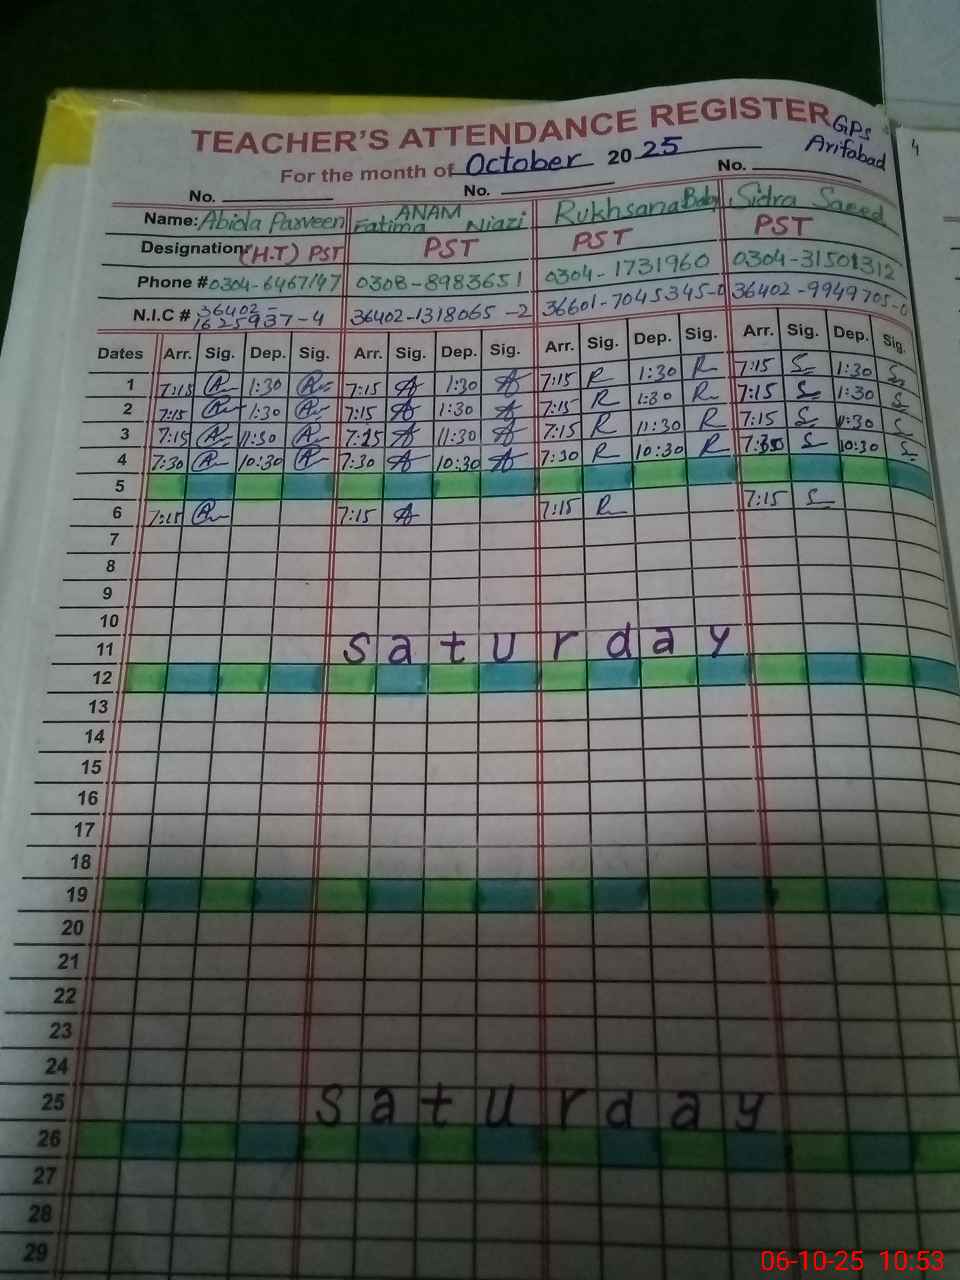 TEACHER'S ATTENDANCE REGISTER GPS
For the month of October 2025 Arifabad
No. No. No.
4
Name: Abida Parveen ANAM Fatima Niazi Rukhsana Baby Sidra Saeed
Designation: (H.T) PST PST PST PST
Phone # 0308-8983651 0304-1731960
N.I.C # 36402-1625937-4 36402-1318065-2 36601-7045345-0 36402-9949705-0
Dates Arr. Sig. Dep. Sig. Arr. Sig. Dep. Sig. Arr. Sig. Dep. Sig. Arr. Sig. Dep. Sig.
1 7:15 1:30 7:15 1:30 7:15 R 1:30 R 7:15 S 1:30 S
2 7:15 1:30 7:15 1:30 7:15 R 1:30 R 7:15 S 1:30 S
3 7:15 11:30 7:15 11:30 7:15 R 11:30 R 7:15 S 11:30 S
4 7:30 10:30 7:30 10:30 7:30 R 10:30 R 7:30 S 10:30 S
5
6 7:15 7:15 7:15 R 7:15 S
7
8
9
10
11 Saturday
12
13
14
15
16
17
18
19
20
21
22
23
24
25 Saturday
26
27
28
29
06-10-25 10:53